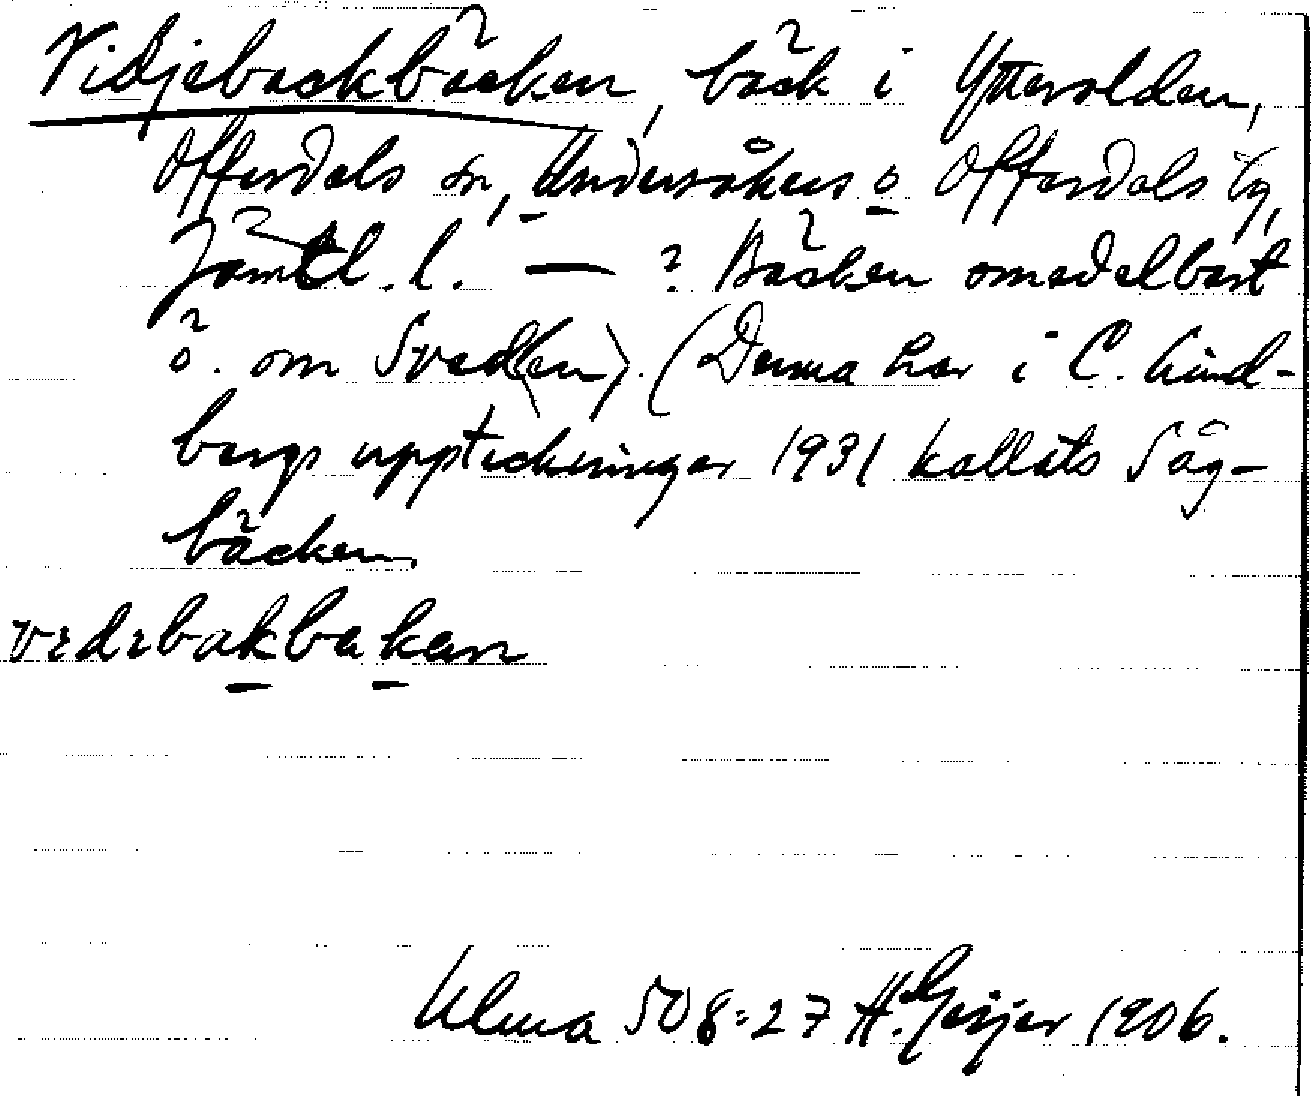 Vidjebackbäcken, bäck i Ytterolden,
Offerdals sn, Undersåkers o Offerdals tg,
Jämtl. l. — ? Bäcken omedelbart
ö. om Svedj(en). (Denna har i C. Lind-
bergs uppteckningar 1931 kallats Såg-
bäcken.
vidibakbeken
Ulma 508:27 H. Geijer 1906.